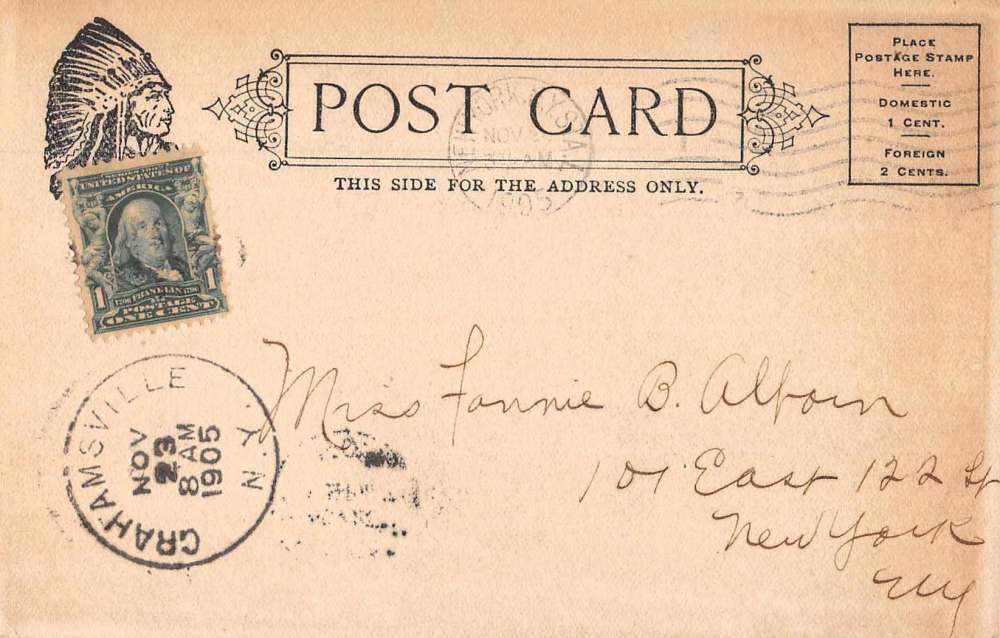 POST CARD
THIS SIDE FOR THE ADDRESS ONLY.
PLACE
POSTAGE STAMP
HERE.
DOMESTIC
1 CENT.
FOREIGN
2 CENTS.
NEW YORK, N.Y. STA.
NOV
AM
1905
UNITED STATES OF
AMERICA
1 1
1706 FRANKLIN 1790
POSTAGE
ONE CENT
GRAHAMSVILLE N.Y.
NOV
23
8 AM
1905
Miss Fannie B.
101 East 122 St
New York
NY